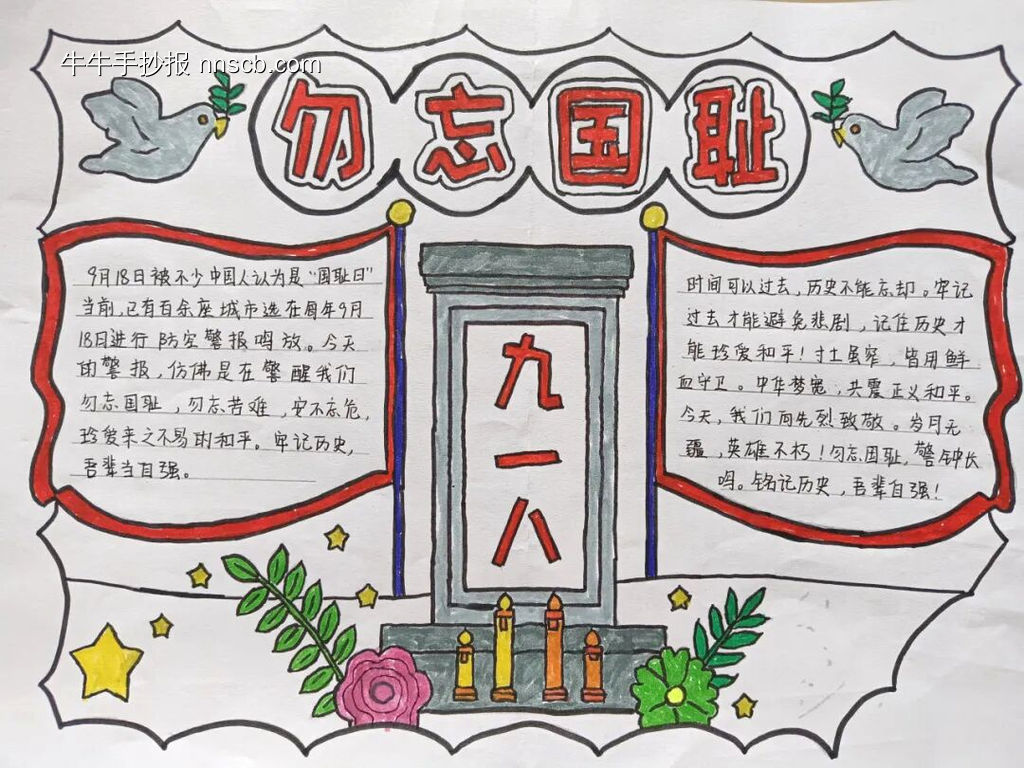 牛牛手抄报 nnscb.com
勿忘国耻
9月18日被不少中国人认为是“国耻日”
当前,已有百余座城市选在每年9月
18日进行防空警报鸣放。今天
的警报,仿佛是在警醒我们
勿忘国耻,勿忘苦难,安不忘危,
珍爱来之不易的和平。牢记历史,
吾辈当自强。
九
一
八
时间可以过去,历史不能忘却。牢记
过去才能避免悲剧,记住历史才
能珍爱和平!寸土虽窄,皆用鲜
血守卫。中华梦宽,共震正义和平。
今天,我们向先烈致敬。岁月无
疆,英雄不朽!勿忘国耻,警钟长
鸣。铭记历史,吾辈自强!